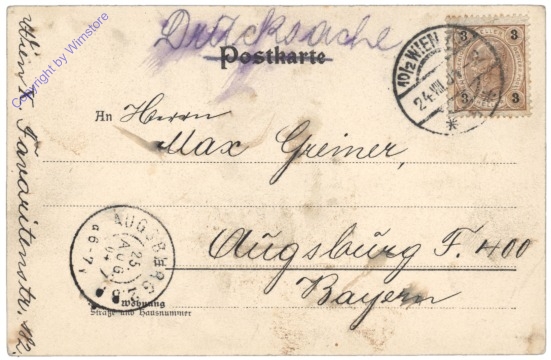 Drucksache
Postkarte
An Herrn
Max Greiner,
Augsburg F. 400
Bayern
Wohnung
Straße und Hausnummer
Wien X. Favoritenstr.
10/2 WIEN
24.VIII
3 3
3 3
AUGSBURG
25
AUG
6-7
Copyright by Wimstore